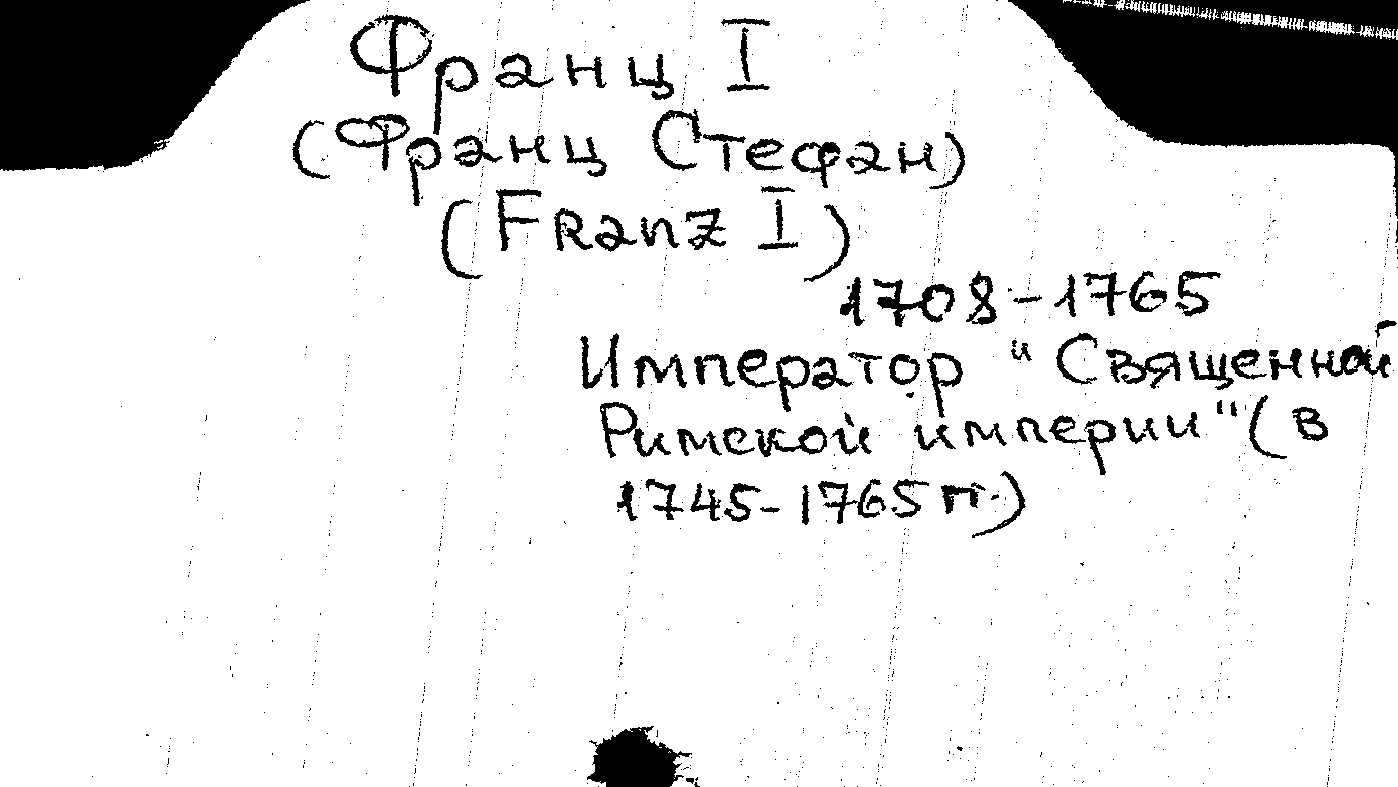 Франц I
(Франц Стефан)
(Franz I)
1708-1765
Император "Священной
Римской империи" (в
1745-1765 гг.)